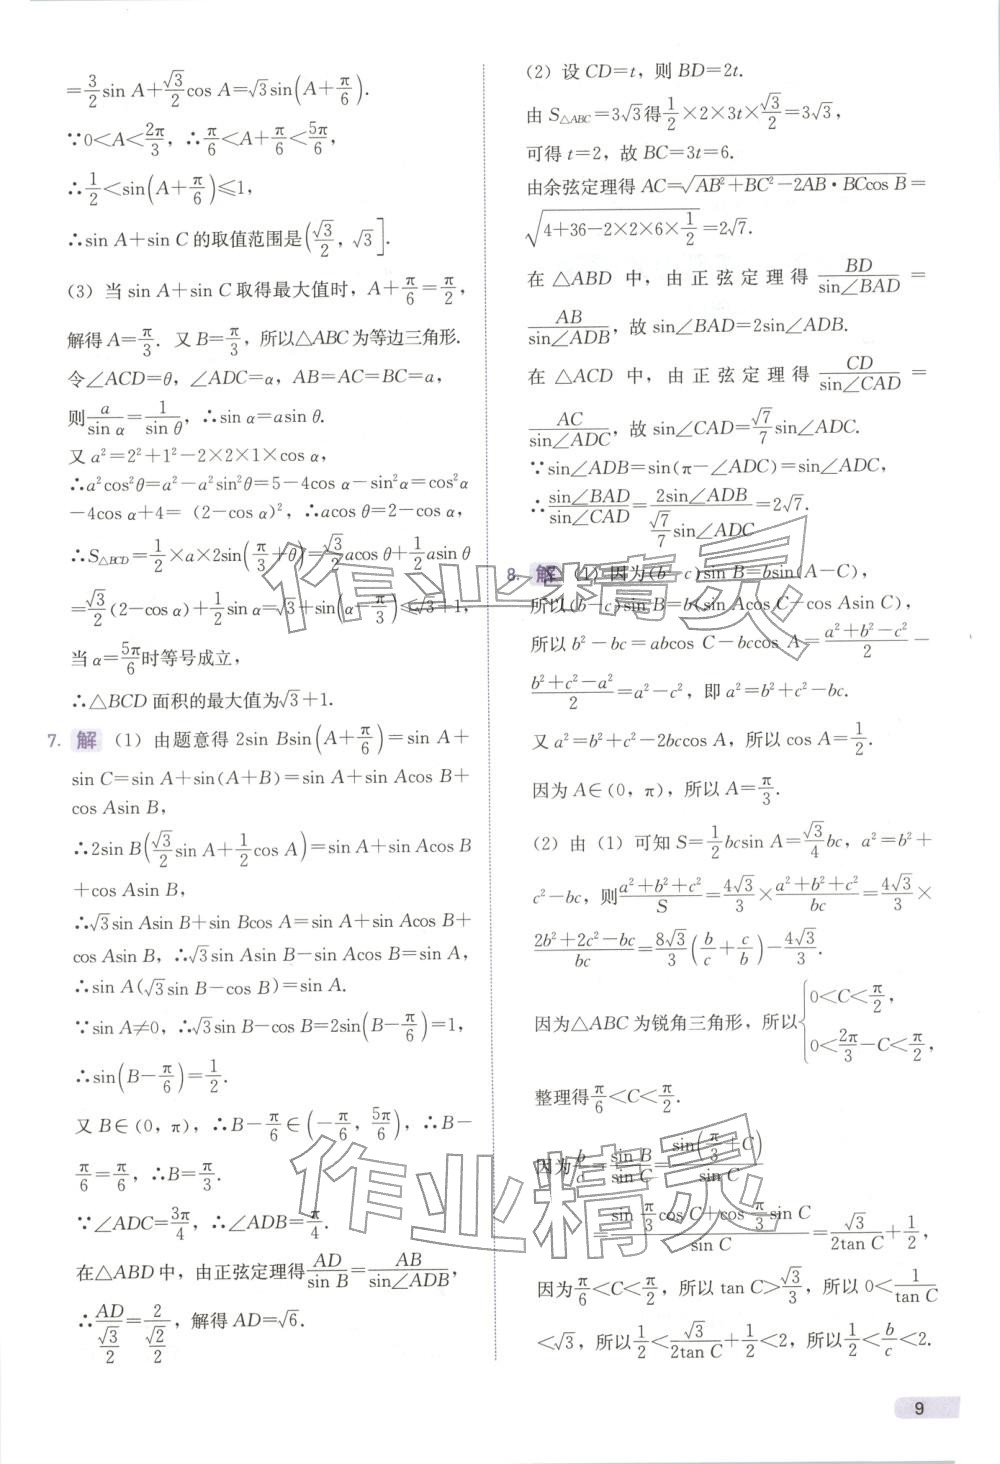 =3/2 sin A+√3/2 cos A=√3sin(A+π/6).
∵0<A<2π/3，∴π/6<A+π/6<5π/6，
∴1/2<sin(A+π/6)≤1，
∴sin A+sin C 的取值范围是(√3/2，√3].
(3) 当 sin A+sin C 取得最大值时，A+π/6=π/2，
解得 A=π/3. 又 B=π/3，所以△ABC 为等边三角形.
令∠ACD=θ，∠ADC=α，AB=AC=BC=a，
则a/sin α=1/sin θ，∴sin α=asin θ.
又 a²=2²+1²-2×2×1×cos α，
∴a²cos²θ=a²-a²sin²θ=5-4cos α-sin²α=cos²α
-4cos α+4=(2-cos α)²，∴acos θ=2-cos α，
∴S△BCD=1/2×a×2sin(π/3+θ)=√3/2 acos θ+1/2 asin θ
=√3/2(2-cos α)+1/2 sin α=√3+sin(α-π/3)≤√3+1，
当 α=5π/6时等号成立，
∴△BCD 面积的最大值为√3+1.
7. 解 (1) 由题意得 2sin Bsin(A+π/6)=sin A+
sin C=sin A+sin(A+B)=sin A+sin Acos B+
cos Asin B，
∴2sin B(√3/2 sin A+1/2 cos A)=sin A+sin Acos B
+cos Asin B，
∴√3sin Asin B+sin Bcos A=sin A+sin Acos B+
cos Asin B，∴√3sin Asin B-sin Acos B=sin A，
∴sin A(√3sin B-cos B)=sin A.
∵sin A≠0，∴√3sin B-cos B=2sin(B-π/6)=1，
∴sin(B-π/6)=1/2.
又 B∈(0，π)，∴B-π/6∈(-π/6，5π/6)，∴B-
π/6=π/6，∴B=π/3.
∵∠ADC=3π/4，∴∠ADB=π/4.
在△ABD 中，由正弦定理得AD/sin B=AB/sin∠ADB，
∴AD/(√3/2)=2/(√2/2)，解得 AD=√6.
(2) 设 CD=t，则 BD=2t.
由 S△ABC=3√3得1/2×2×3t×√3/2=3√3，
可得 t=2，故 BC=3t=6.
由余弦定理得 AC=√(AB²+BC²-2AB·BCcos B)=
√(4+36-2×2×6×1/2)=2√7.
在 △ABD 中，由正弦定理得 BD/sin∠BAD=
AB/sin∠ADB，故 sin∠BAD=2sin∠ADB.
在 △ACD 中，由正弦定理得 CD/sin∠CAD=
AC/sin∠ADC，故 sin∠CAD=√7/7 sin∠ADC.
∵sin∠ADB=sin(π-∠ADC)=sin∠ADC，
∴sin∠BAD/sin∠CAD=2sin∠ADB/(√7/7 sin∠ADC)=2√7.
8. 解 (1) 因为(b-c)sin B=bsin(A-C)，
所以(b-c)sin B=b(sin Acos C-cos Asin C)，
所以 b²-bc=abcos C-bccos A=(a²+b²-c²)/2-
(b²+c²-a²)/2=a²-c²，即 a²=b²+c²-bc.
又 a²=b²+c²-2bccos A，所以 cos A=1/2.
因为 A∈(0，π)，所以 A=π/3.
(2) 由(1)可知 S=1/2 bcsin A=√3/4 bc，a²=b²+
c²-bc，则(a²+b²+c²)/S=4√3/3×(a²+b²+c²)/bc=4√3/3×
(2b²+2c²-bc)/bc=8√3/3(b/c+c/b)-4√3/3.
因为△ABC 为锐角三角形，所以{0<C<π/2，
0<2π/3-C<π/2，
整理得π/6<C<π/2.
因为b/c=sin B/sin C=sin(π/3+C)/sin C
=(sin π/3 cos C+cos π/3 sin C)/sin C=√3/(2tan C)+1/2，
因为π/6<C<π/2，所以 tan C>√3/3，所以 0<1/tan C
<√3，所以1/2<√3/(2tan C)+1/2<2，所以1/2<b/c<2.
作业精灵
作业精灵
9